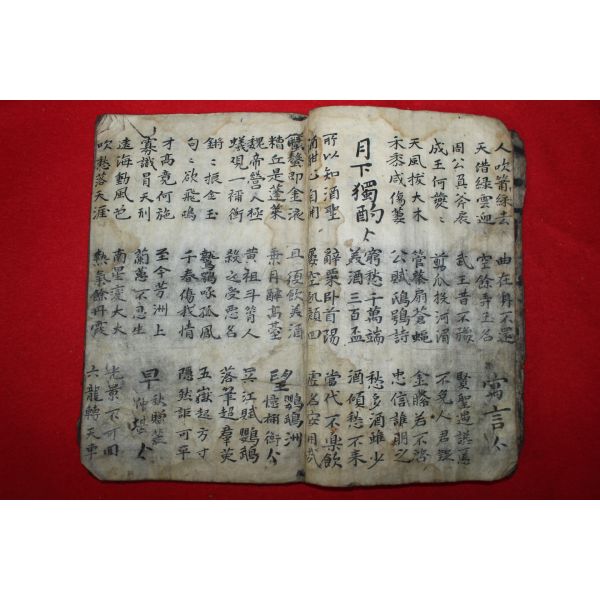 人吹簫綵去 曲在身不還
天借綠雲迎 空餘弄玉名 寓言
周公負斧扆 武王昔不豫 賢聖遇讒慝
成王何夔〻 剪爪投河湄 不免人君疑
天風拔大木 管蔡扇蒼蠅 金縢若不啓
禾黍咸傷萎 公賦鴟鴞詩 忠信誰明之
月下獨酌 窮愁千萬端 愁多酒雖少
美酒三百盃 酒傾愁不來
所以知酒聖 辭粟卧首陽 當代不樂飲
酒酣心自開 屢空飢顔回 虛名安用哉
蟹螯即金液 且須飲美酒 望鸚鵡洲
糟丘是蓬萊 乘月醉高臺 憶禰衡
魏帝營八極 黃祖斗筲人 吳江賦鸚鵡
蟻觀一禰衡 殺之受惡名 落筆超群英
鏘〻振金玉 鷙鶚啄孤鳳 五嶽起方寸
句〻欲飛鳴 千春傷我情 隱然詎可平
才高竟何施 至今芳洲上 早秋贈裴
寡識冒天刑 蘭蕙不忍生 仲堪
遠海動風色 南星變大火 光景不可回
吹愁落天涯 熱氣餘丹霞 六龍轉天車